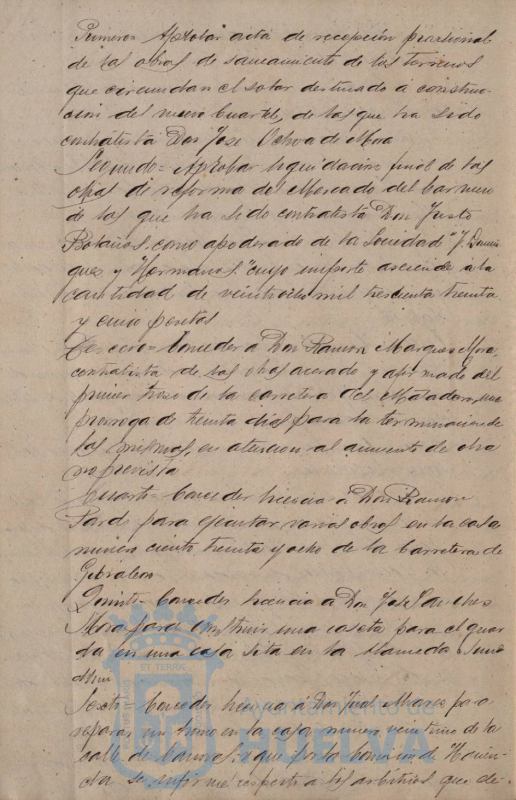 Primero= Aprobar acta de recepción provisional
de las obras de saneamiento de los terrenos
que circundan el solar destinado á construc-
ción del nuevo Cuartel, de las que ha sido
contratista Don Jose Ochoa de Mora
Segundo= Aprobar liquidación final de las
obras de reforma del Mercado del Carmen
de las que ha sido contratista Don Justo
Bolaños como apoderado de la Sociedad "J. Domin
gues y Hermanos" cuyo importe asciende a la
cantidad de veintiocho mil trescienta treinta
y cinco pesetas
Tercero= Conceder á Don Ramon Marques Mora,
contratista de las obras acerado y afirmado del
primer trozo de la carretera del Matadero, una
prorroga de treinta dias para la terminacion de
las mismas, en atencion al aumento de obra
no prevista
Cuarto= Conceder licencia á Don Ramon
Pardo para ejecutar varias obras en la casa
numero ciento treinta y ocho de la Carretera de
Gibraleon
Quinto= Conceder licencia a Don Jose Sanches
Mora para construir una caseta para el guar
da en una casa sita en la Alameda Sund
heim
Sexto= Conceder licencia á Don José Marco para
reparar un tramo en la casa numero veintiuno de la
calle de y que por la Comision de Hacien-
da se informe respecto a los arbitrios que de-
ET TERRIS
Ayuntamiento de
HUELVA